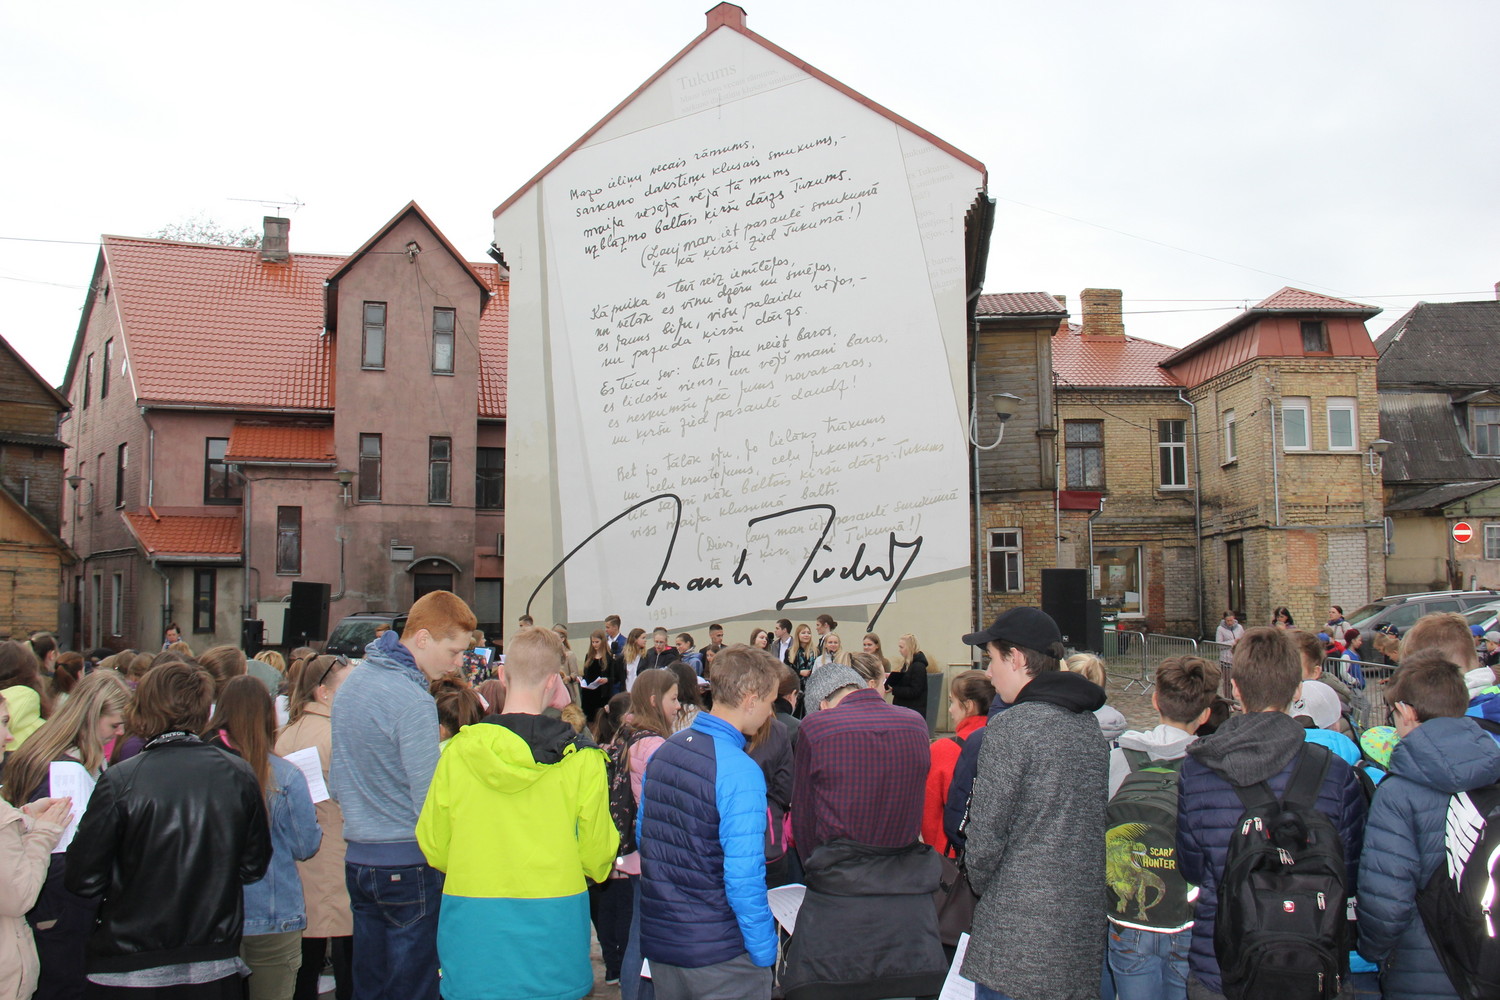 Tukums
Mazo ieliņu vecais rāmums,
sarkano dakstiņu klusais smukums,-
maija vēsajā vējā tā mums
uzblāzmo baltais ķiršu dārzs Tukums.
(Ļauj man iet pasaulē smukumā
tā kā ķirši zied Tukumā!)
Kā puika es tevi reiz iemīlējos,
un vēlāk es vīnu dzēru un smējos,
es jauns biju, visu palaidu vējos,-
un pazuda ķiršu dārzs.
Es teicu sev: bites jau neiet baros,
es lidošu viens, un vējš mani baros,
es neskumšu pēc jums novakaros,
un ķiršu zied pasaulē daudz!
Bet jo tālāk eju, jo lielāks trākums
un ceļu krustojums, ceļu jukums,-
tik sapņī nāk baltais ķiršu dārzs: Tukums
viss maija klusumā balts.
(Dievs, ļauj man iet pasaulē smukumā
tā kā ķirši zied Tukumā!)
Imants Ziedonis
1991.
SCARY
HUNTER